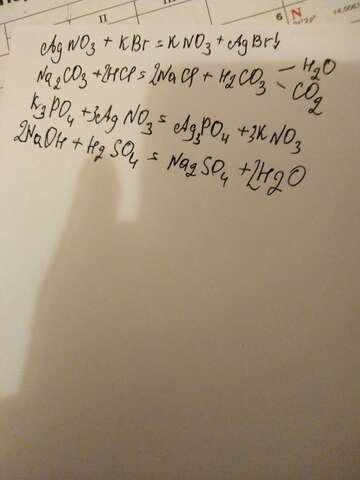 II
6 N
14,0067
AgNO3 + KBr = KNO3 + AgBr↓
Na2CO3 + 2HCl = 2NaCl + H2CO3 — H2O
CO2
K3PO4 + 3AgNO3 = Ag3PO4 + 3KNO3
2NaOH + H2SO4 = Na2SO4 + 2H2O